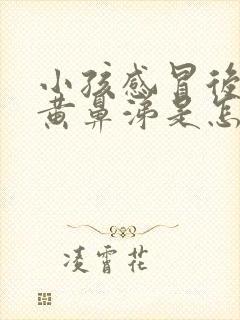 小孩感冒後
黄鼻涕是怎
凌霄花